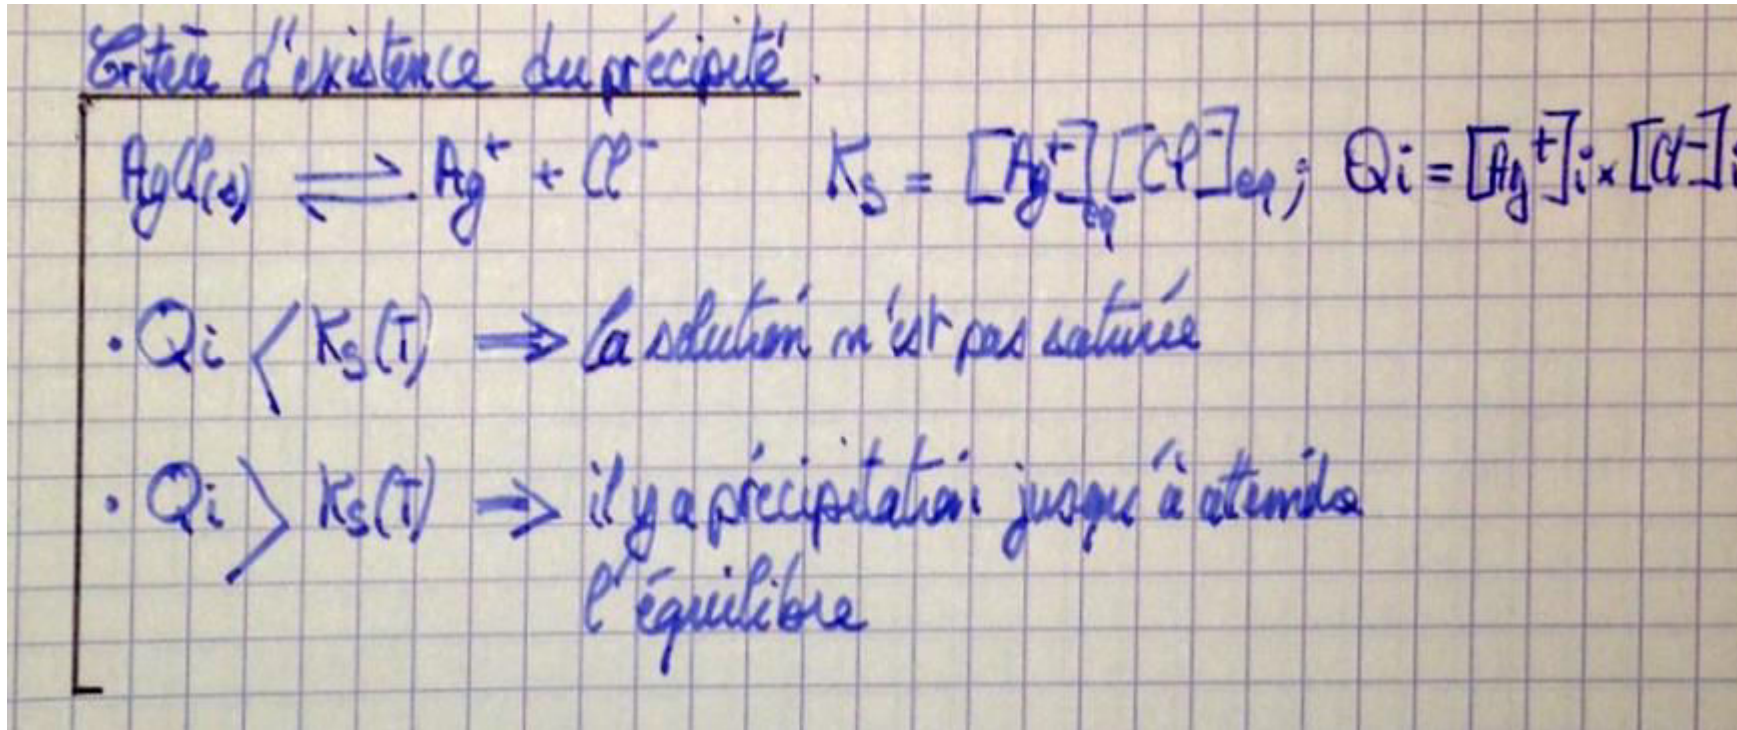 Critère d'existence du précipité.
AgCl(s) ⇌ Ag⁺ + Cl⁻ Ks = [Ag⁺]eq [Cl⁻]eq ; Qi = [Ag⁺]i × [Cl⁻]i
• Qi < Ks(T) ⇒ la solution n'est pas saturée
• Qi > Ks(T) ⇒ il y a précipitation jusqu'à atteindre
l'équilibre